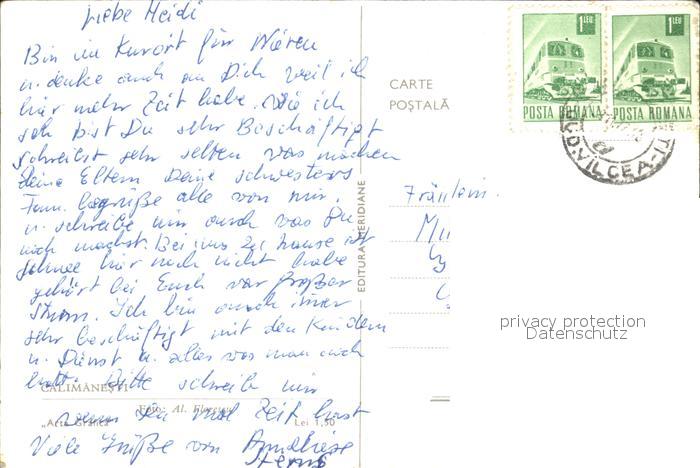 Liebe Heidi
Bin im Kurort für Nieren
u. denke auch an Dich weil ich
hier mehr Zeit habe. Wie ich
seh bist Du sehr Beschäftigt
schreibst sehr selten was machen
deine Eltern Deine schwesters
Fam. begrüße alle von mir.
u. schreibe mir auch was Du
noch machst. Bei uns zu hause ist
schnee hier noch nicht habe
gehört bei Euch war großer
Sturm. Ich bin auch imer
sehr beschäftigt mit den Kindern
u. Dienst u. alles was man noch
hat. Bitte schreib mir
CĂLIMĂNEŞTI
wenn Du mal Zeit hast
Foto: Al. Florescu
„Arta Grafică" Lei 1,50
Viele Grüße von Anneliese
EDITURA MERIDIANE
CARTE
POŞTALĂ
1 LEU
1 LEU
POSTA ROMANA
POSTA ROMANA
JUD. VILCEA
Fräulein
privacy protection
Datenschutz